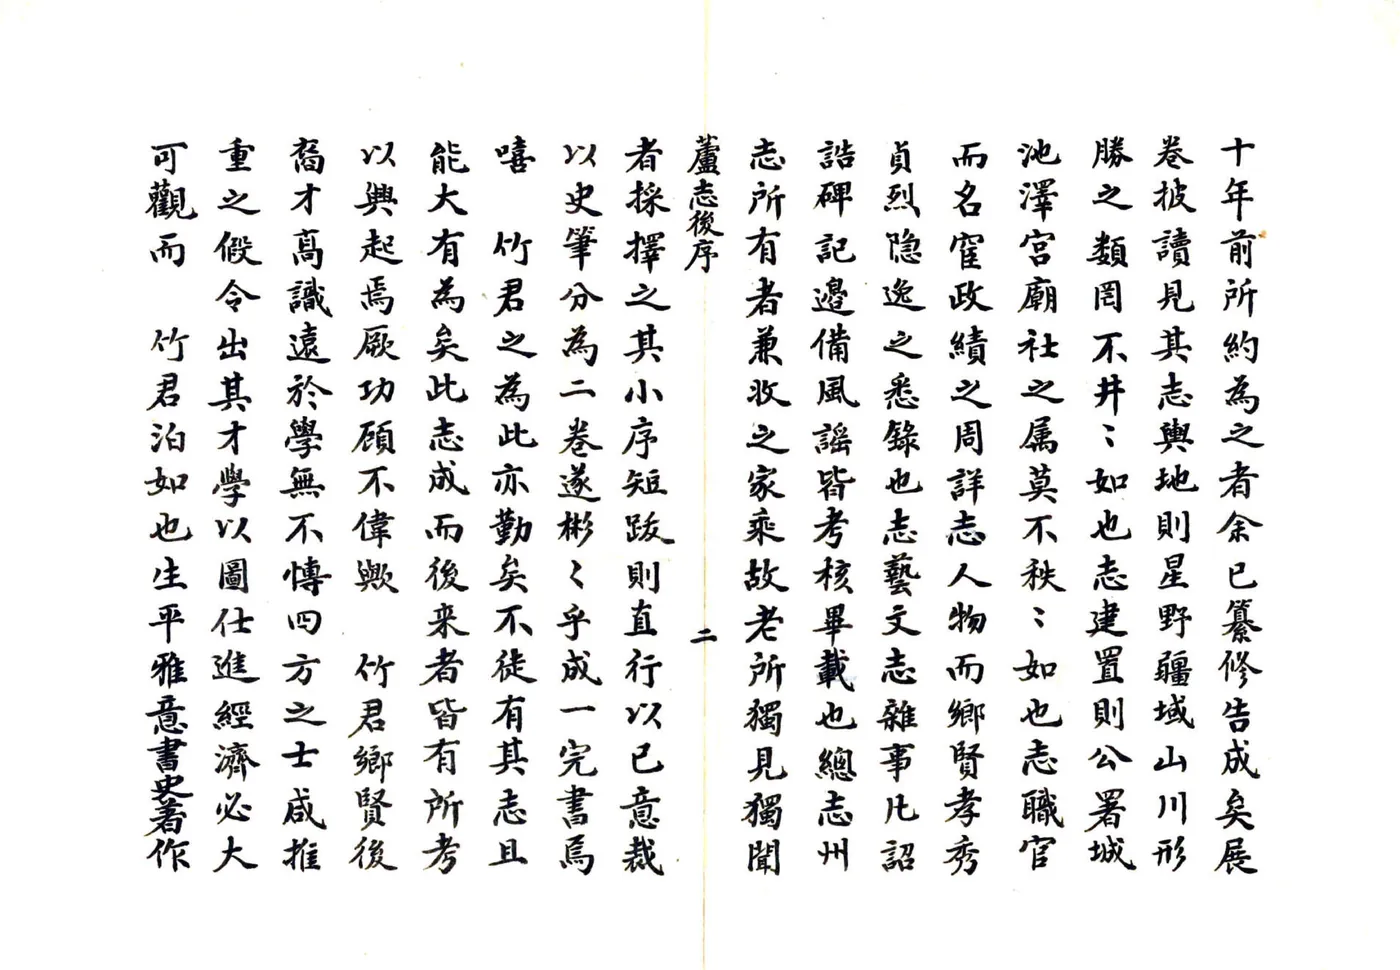 十年前所約為之者余已纂修告成矣展
卷披讀見其志輿地則星野疆域山川形
勝之類罔不井〻如也志建置則公署城
池澤宮廟社之属莫不秩〻如也志職官
而名宦政績之周詳志人物而鄉賢孝秀
貞烈隐逸之悉錄也志藝文志雜事凡詔
誥碑記邊備風謡皆考核畢載也總志州
志所有者兼收之家乘故老所獨見獨聞
蘆志後序
二
者採擇之其小序短跋則直行以已意裁
以史筆分為二卷遂彬〻乎成一完書焉
嘻 竹君之為此亦勤矣不徒有其志且
能大有為矣此志成而後来者皆有所考
以興起焉厥功顧不偉歟 竹君鄉賢後
裔才高識遠於學無不博四方之士咸推
重之假令出其才學以圖仕進經濟必大
可觀而 竹君泊如也生平雅意書史著作